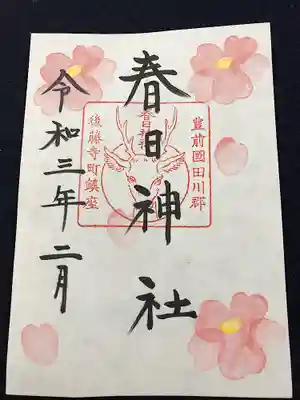 豊前國田川郡
春日神社
春日神社
後藤寺町鎮座
令和三年二月